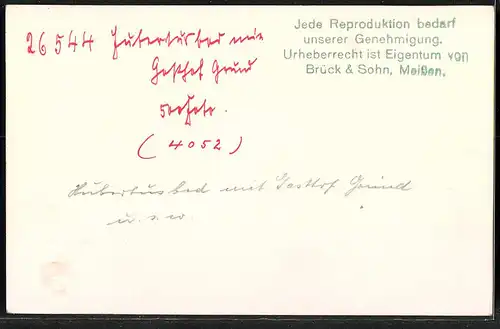 26 544 Hubertusbad mit
Gasthof Grund

(4052)
Jede Reproduktion bedarf
unserer Genehmigung.
Urheberrecht ist Eigentum von
Brück & Sohn, Meißen.
Hubertusbad mit Gasthof Grund
u. s. w.